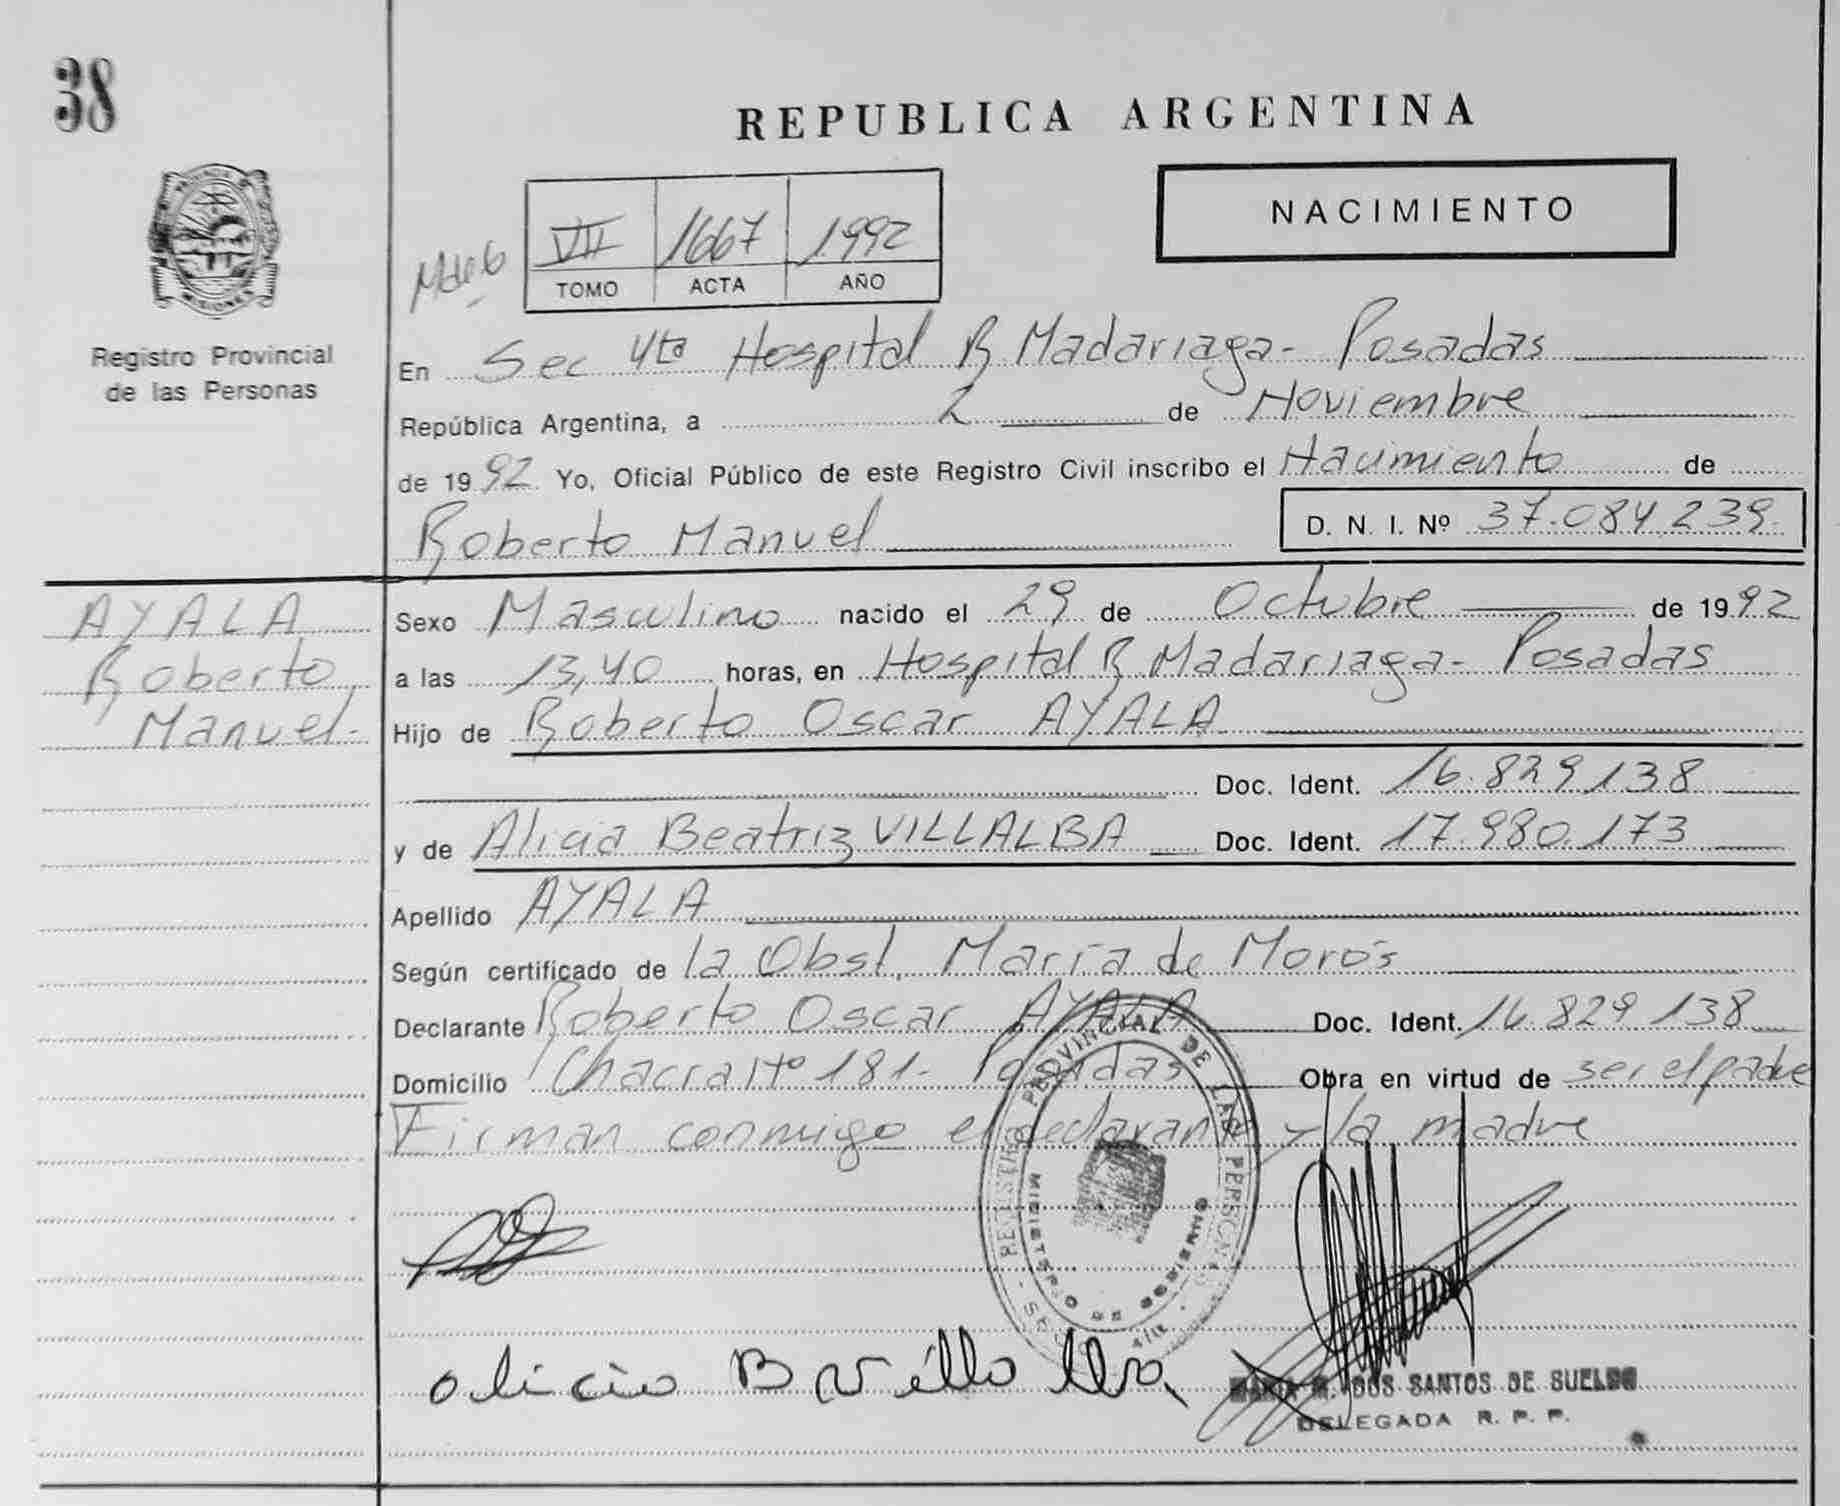 38
REPUBLICA ARGENTINA
PROVINCIA DE
MISIONES
Registro Provincial
de las Personas
VII 1667 1992
TOMO ACTA AÑO
NACIMIENTO
En Sec 4ta Hospital R Madariaga - Posadas
República Argentina, a 2 de Noviembre
de 1992 Yo, Oficial Público de este Registro Civil inscribo el Nacimiento de
Roberto Manuel D. N. I. Nº 37.084.239.
AYALA
Roberto
Manuel-
Sexo Masculino nacido el 29 de Octubre de 1992
a las 13,40 horas, en Hospital R Madariaga - Posadas
Hijo de Roberto Oscar AYALA
Doc. Ident. 16.829.138
y de Alicia Beatriz VILLALBA Doc. Ident. 17.980.173
Apellido AYALA
Según certificado de la Obst. María de Morós
Declarante Roberto Oscar AYALA Doc. Ident. 16.829.138
Domicilio Chacra Nº 181- Posadas Obra en virtud de ser el padre
Firman conmigo el declarante y la madre
REGISTRO PROVINCIAL DE LAS PERSONAS
MINISTERIO DE GOBIERNO
DOS SANTOS DE SUELDO
DELEGADA R. P. P.